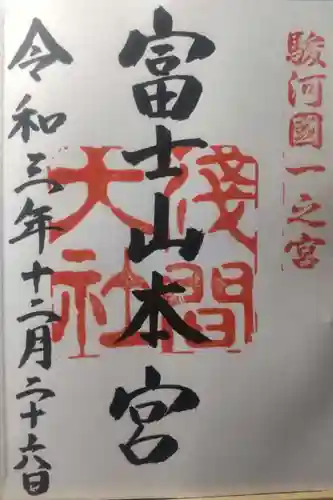 駿河國一之宮
富士山本宮
淺間大社
令和三年十二月二十六日